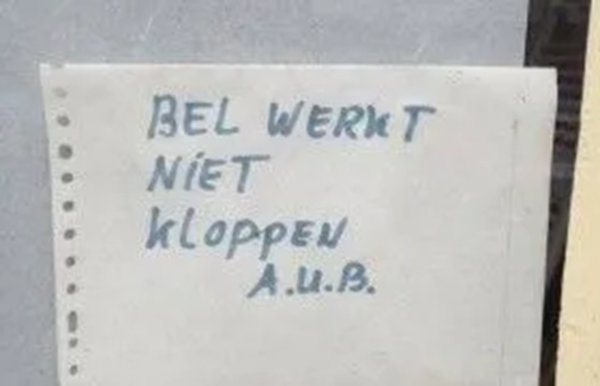 BEL WERKT
NiET
KLOPPEN
A.U.B.